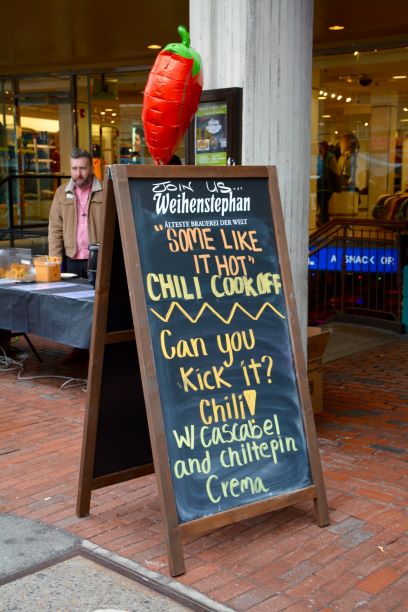 JOIN US...
Weihenstephan
ÄLTESTE BRAUEREI DER WELT
"SOME LIKE
IT HOT"
CHILI COOKOFF
Can you
Kick it?
Chili
W/ Cascabel
and chiltepin
Crema
A SNACK OR